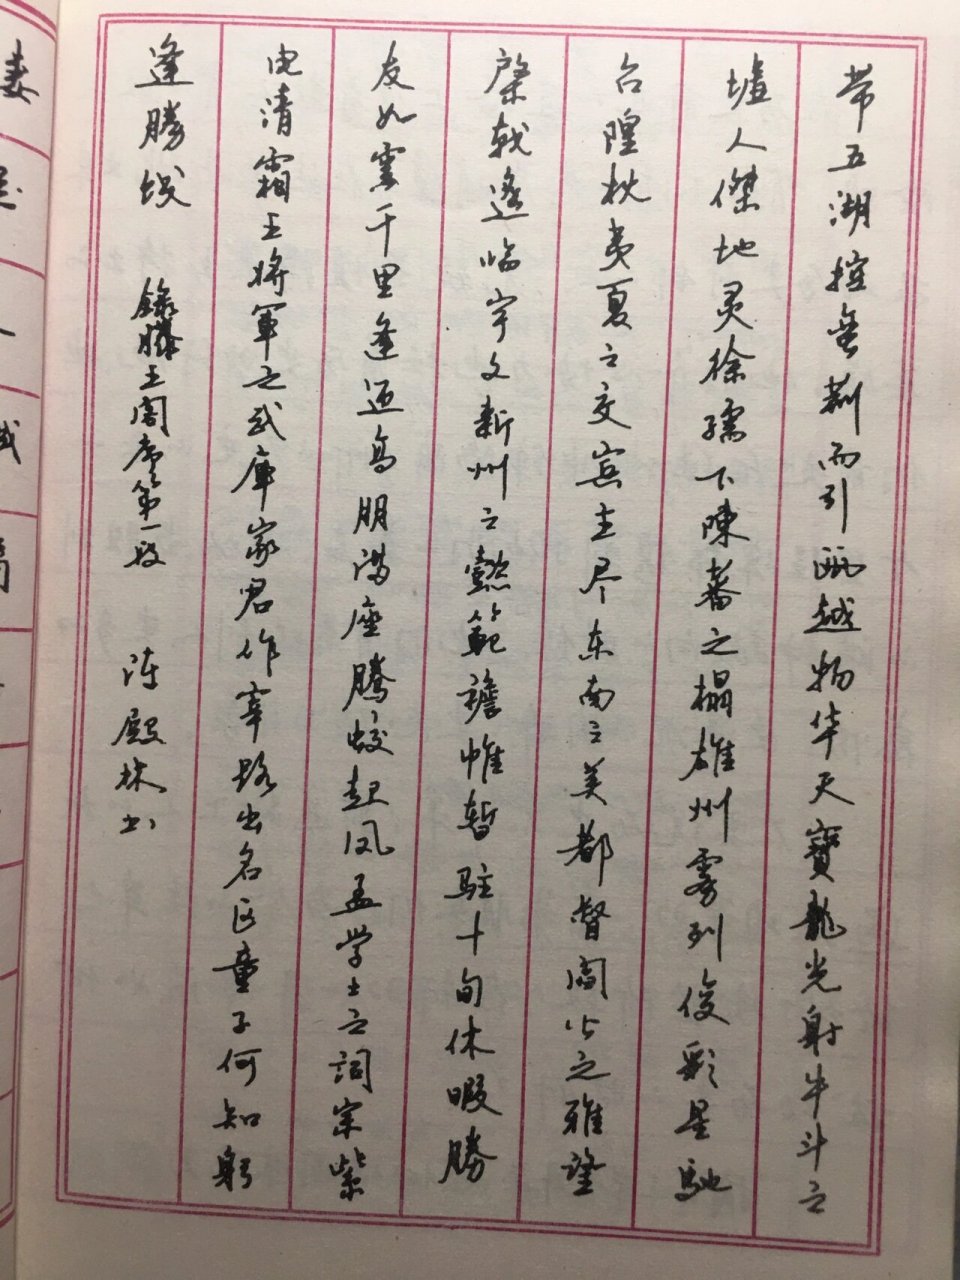 带五湖控蛮荆而引瓯越物华天寳龍光射牛斗之
墟人傑地灵徐孺下陳蕃之榻雄州雾列俊彩星馳
台隍枕夷夏之交宾主尽东南之美都督阎公之雅望
棨戟遥临宇文新州之懿範襜帷暂驻十旬休暇勝
友如雲千里逢迎高朋满座腾蛟起凤孟学士之词宗紫
电清霜王将軍之武庫家君作宰路出名区童子何知躬
逢勝饯 錄滕王阁序第一段 陈殿林书
妻